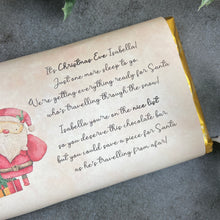 It's Christmas Eve Isabella!
Just one more sleep to go
We're getting everything ready for Santa
who's travelling through the snow!
Isabella you're on the nice list
so you deserve this chocolate bar
but you could save a piece for Santa
as he's travelling from afar!